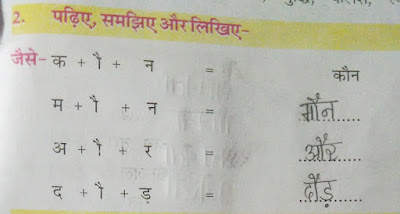 2. पढ़िए, समझिए और लिखिए-
जैसे- क + ौ + न = कौन
म + ौ + न = मौन
अ + ौ + र = और
द + ौ + ड़ = दौड़